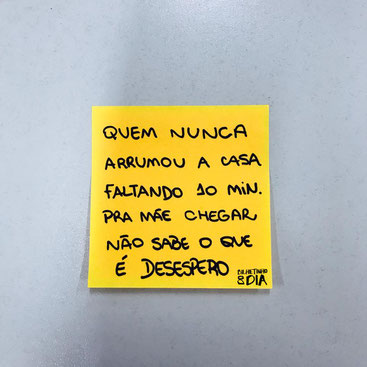 QUEM NUNCA
ARRUMOU A CASA
FALTANDO 10 MIN.
PRA MÃE CHEGAR
NÃO SABE O QUE
É DESESPERO
BILHETINHO
DO DIA